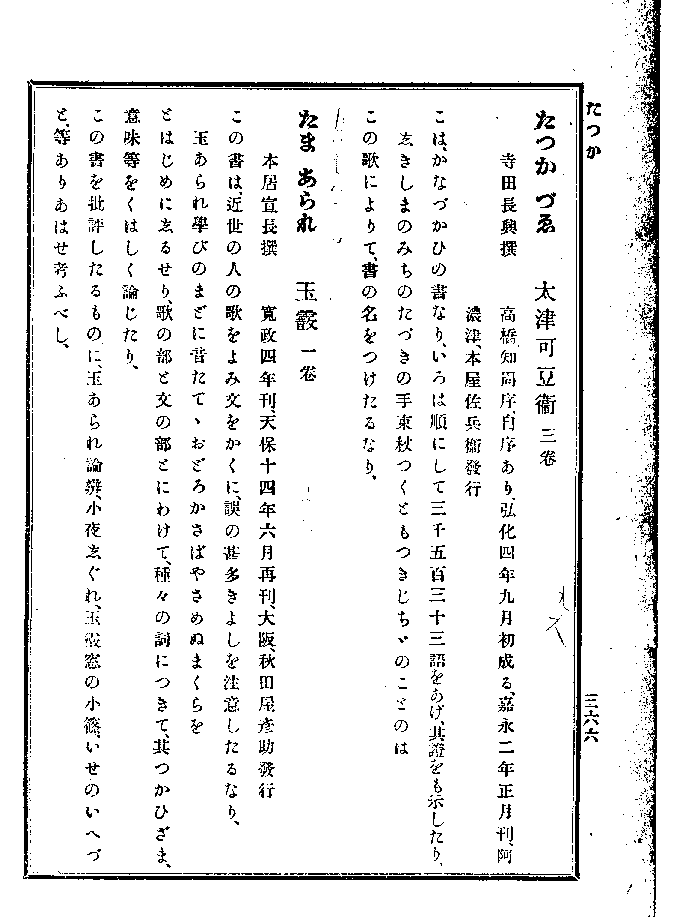 たつか
三六六
たつか づゑ 太津可豆衞 三卷
寺田長興撰 高橋知周序、自序あり、弘化四年九月初成る、嘉永二年正月刊、阿
濃津、本屋佐兵衞發行
こは、かなづかひの書なり、いろは順にして三千五百三十三語をあげ、其證をも示したり、
ゑきしまのみちのたづきの手束杖つくともつきじちゞのことのは
この歌によりて、書の名をつけたるなり、
たま あられ 玉霰 一卷
本居宣長撰 寬政四年刊、天保十四年六月再刊、大阪、秋田屋彥助發行
この書は、近世の人の歌をよみ文をかくに、誤の甚多きよしを注意したるなり、
玉あられ學びのまどに音たてゝおどろかさばやさめぬまくらを
とはじめにゑるせり、歌の部と文の部とにわけて、種々の詞につきて、其つかひざま、
意味等をくはしく論じたり、
この書を批評したるものに、玉あられ論、小夜ゑぐれ、玉霰窓の小篠、いせのいへづ
と、等ありあはせ考ふべし、